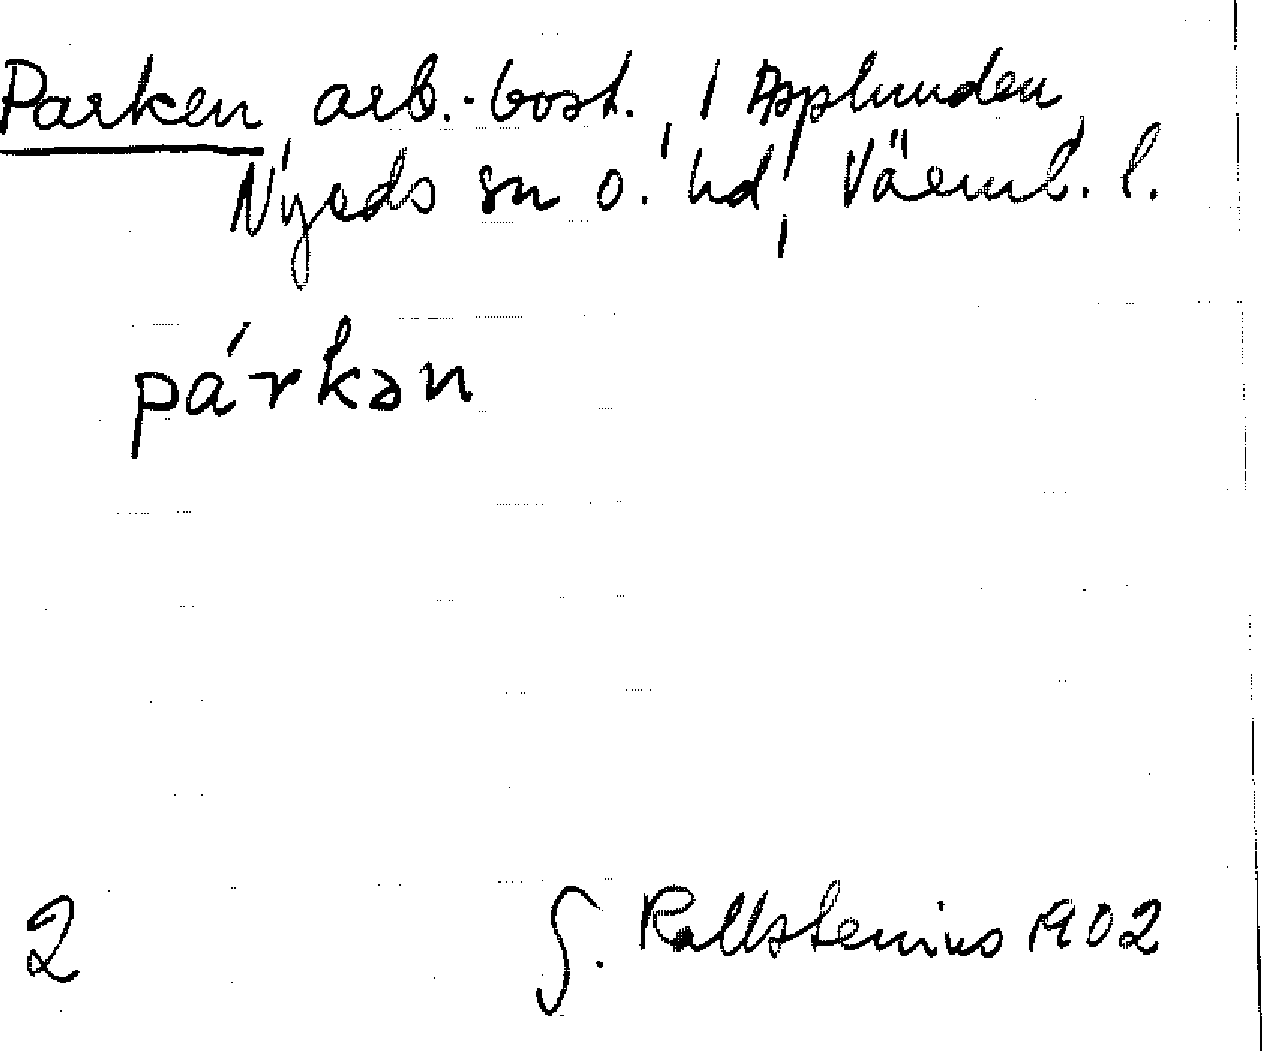 Parken, arb.-bost., 1 Asplunden,
Nyeds sn o. hd, Värml. l.
párkən
2 G. Kallstenius 1902